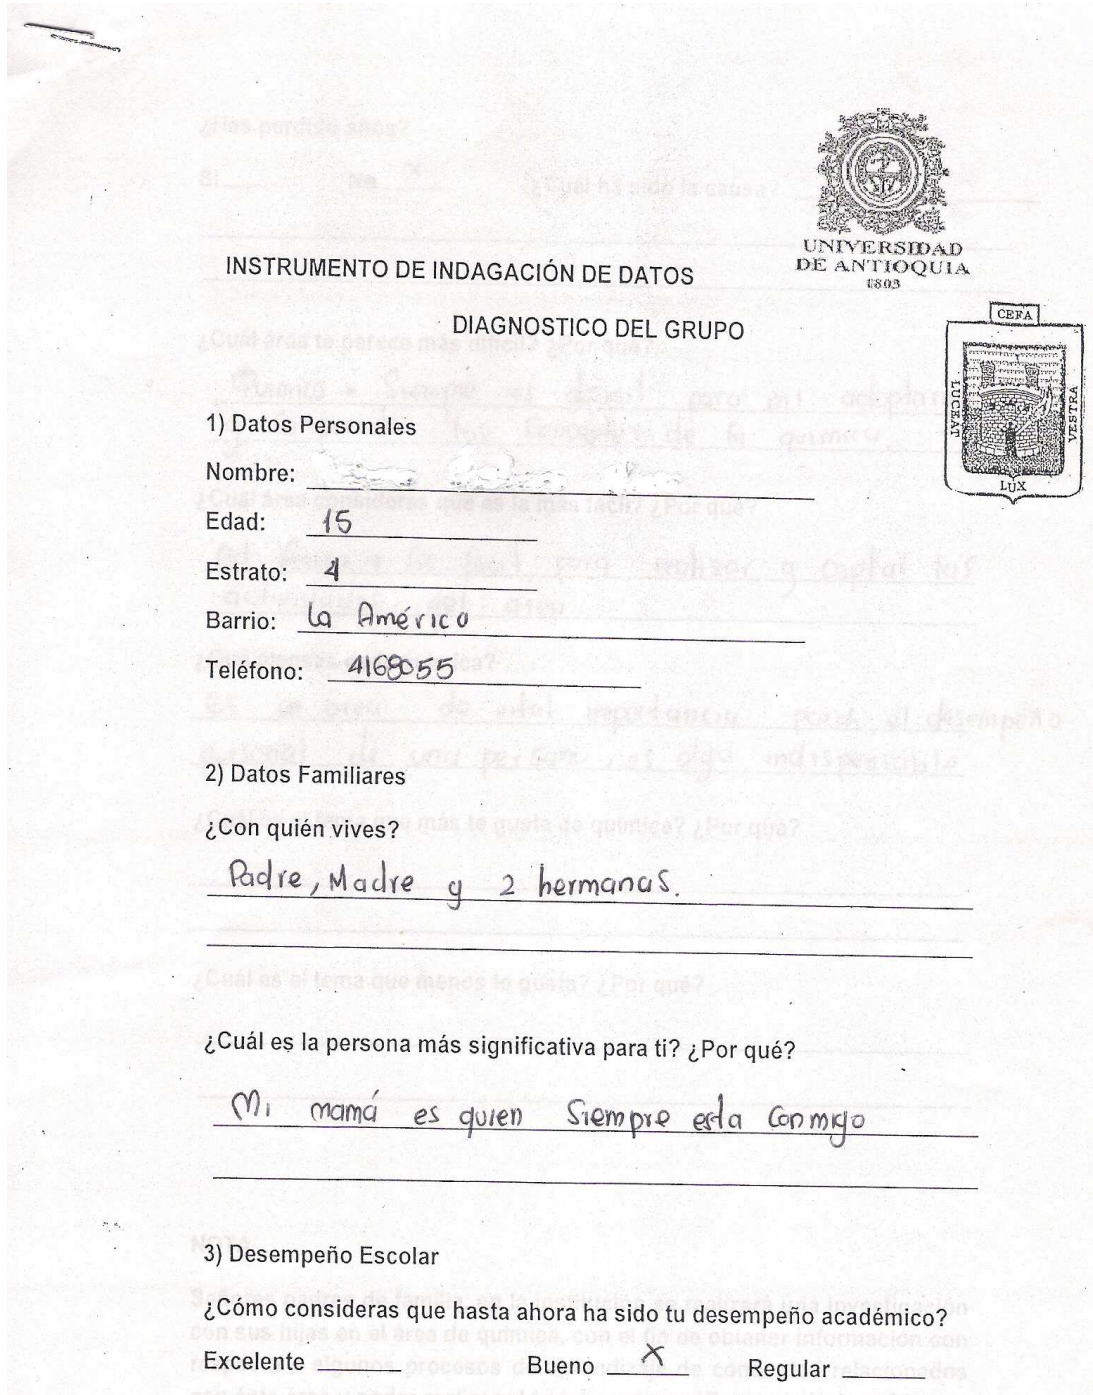 UNIVERSIDAD
DE ANTIOQUIA
1803
INSTRUMENTO DE INDAGACIÓN DE DATOS
DIAGNOSTICO DEL GRUPO
CEFA
LUCEAT
VESTRA
LUX
1) Datos Personales
Nombre:
Edad: 15
Estrato: 4
Barrio: la América
Teléfono: 4168055
2) Datos Familiares
¿Con quién vives?
Padre, Madre y 2 hermanas.
¿Cuál es la persona más significativa para ti? ¿Por qué?
Mi mamá es quien siempre esta conmigo
3) Desempeño Escolar
¿Cómo consideras que hasta ahora ha sido tu desempeño académico?
Excelente Bueno X Regular